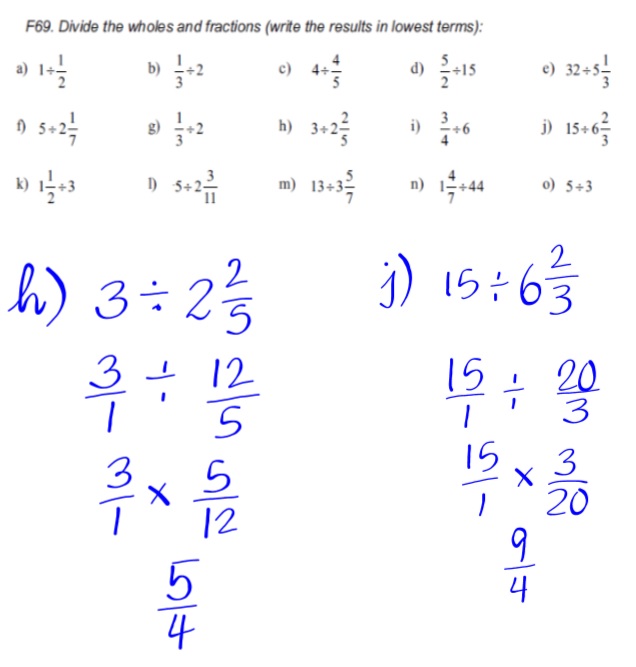 F69. Divide the wholes and fractions (write the results in lowest terms):
a) 1÷1/2 b) 1/3÷2 c) 4÷4/5 d) 5/2÷15 e) 32÷5 1/3
f) 5÷2 1/7 g) 1/3÷2 h) 3÷2 2/5 i) 3/4÷6 j) 15÷6 2/3
k) 1 1/2÷3 l) 5÷2 3/11 m) 13÷3 5/7 n) 1 4/7÷44 o) 5÷3
h) 3 ÷ 2 2/5
3/1 ÷ 12/5
3/1 × 5/12
5/4
j) 15 ÷ 6 2/3
15/1 ÷ 20/3
15/1 × 3/20
9/4